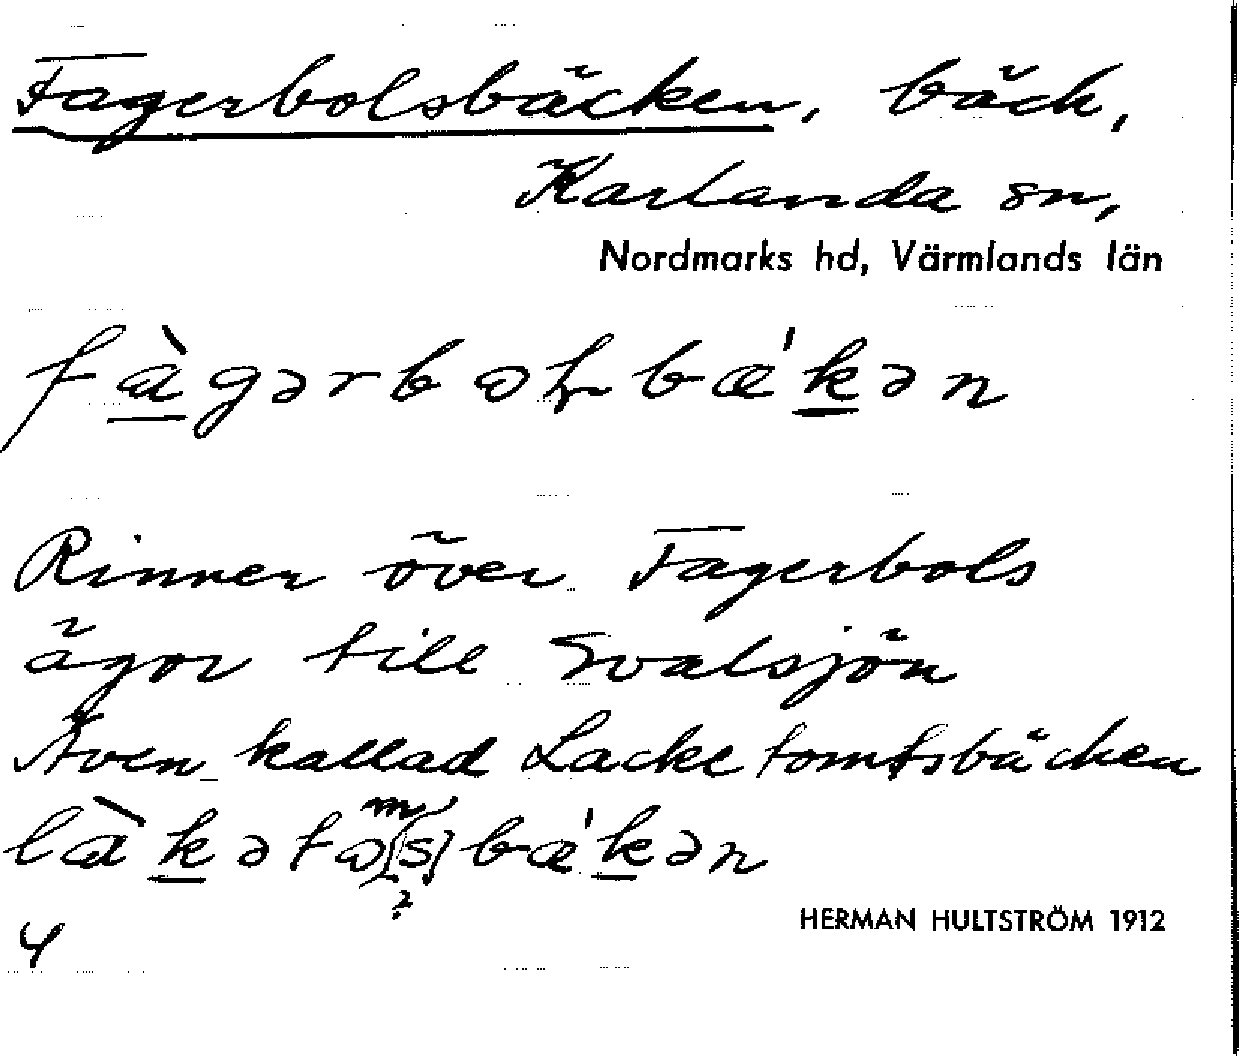 Fagerbolsbäcken, bäck,
Karlanda sn,
Nordmarks hd, Värmlands län
fàgərboḷsbæ'kən
Rinner över Fagerbols
ägor till Svalsjön
Även kallad Lacketomtsbäcken
làkətωm(s)bæ'kən
?
4
HERMAN HULTSTRÖM 1912